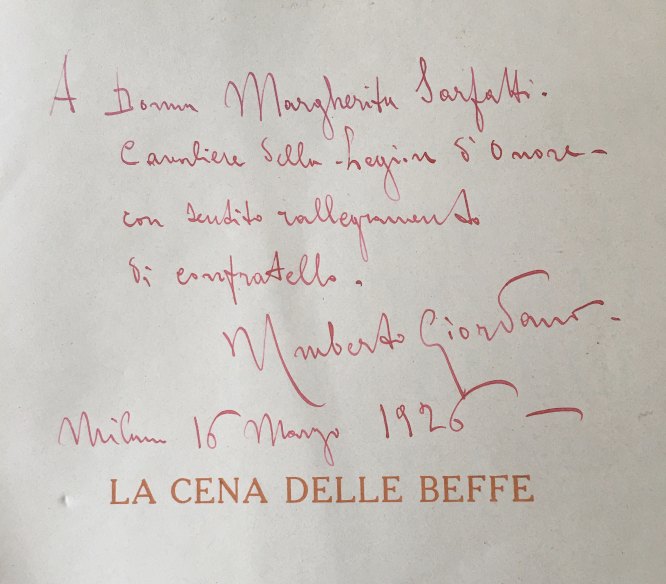 A Donna Margherita Sarfatti.
Cavaliere della Legion d'Onore –
con sentito rallegramento
di confratello.
Umberto Giordano –
Milano 16 Marzo 1926 –
LA CENA DELLE BEFFE